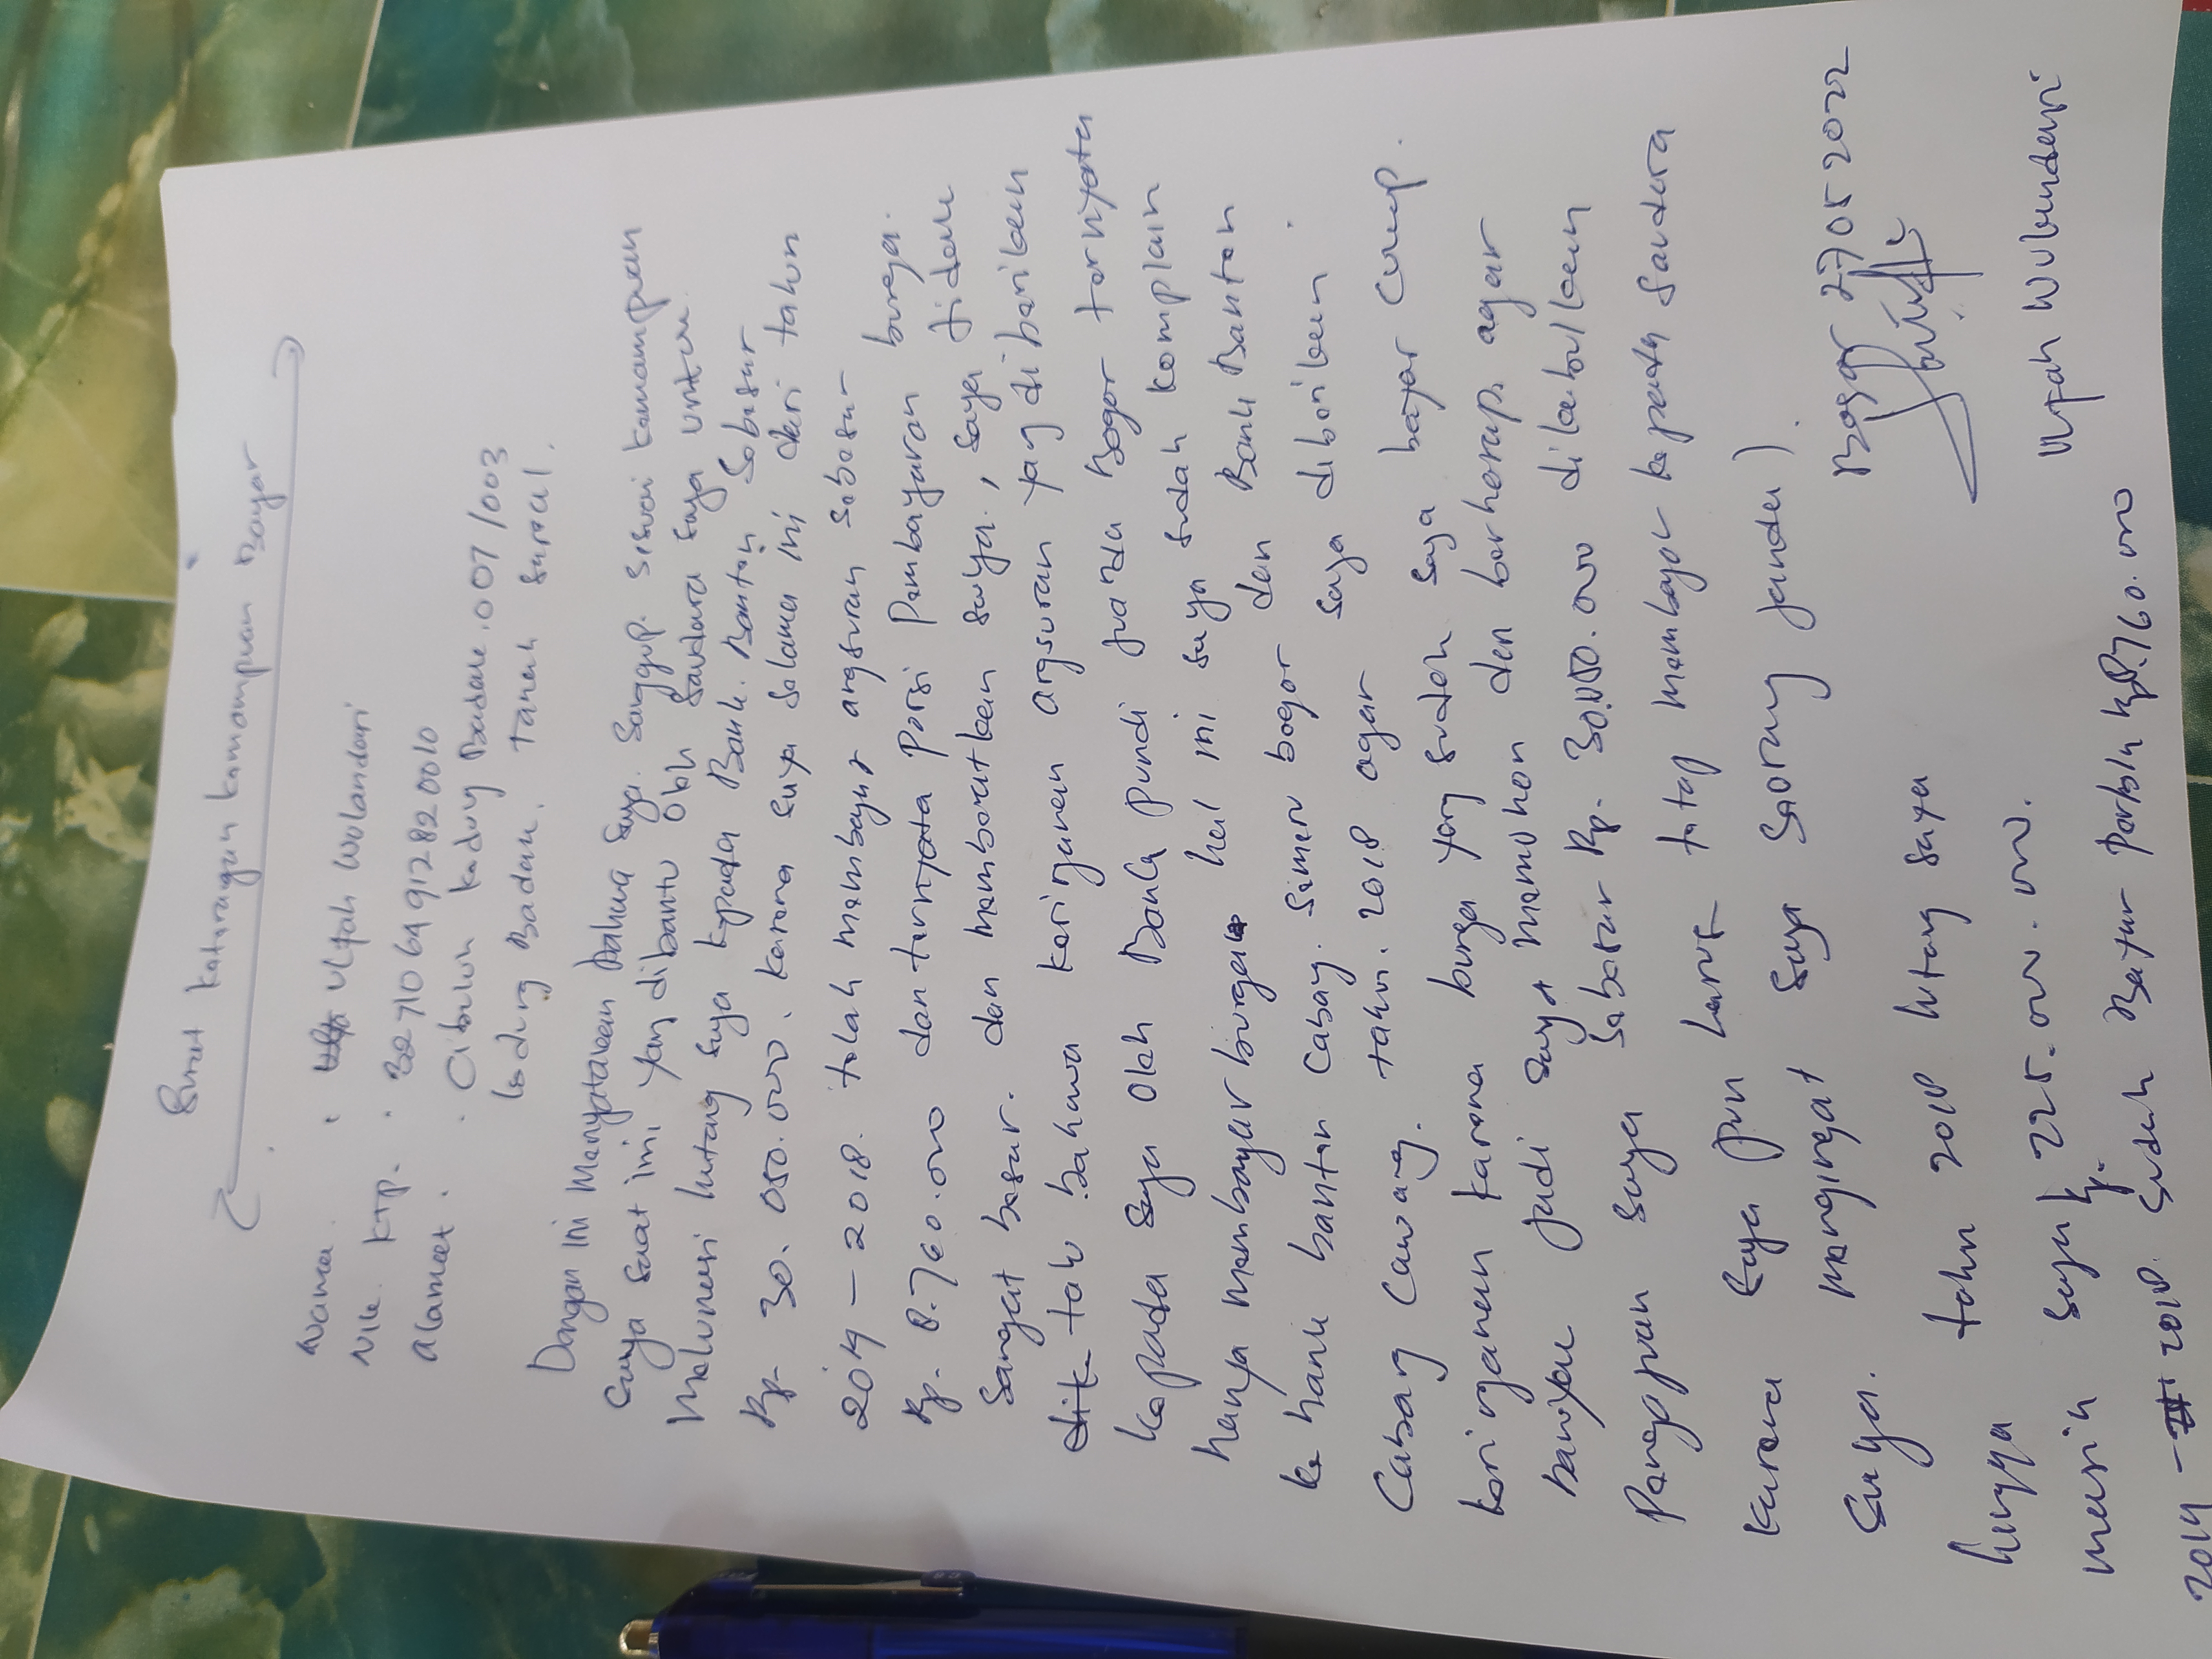 Surat keterangan kemampuan Bayar
Nama : Ulfah Wulandari
Nik KTP. : 3271064912820010
Alamat : Cibuluh kaduy Badak. 007/003
kedung Badak. Tanah Sareal.
Dengan ini Menyatakan bahwa saya. Sanggup. sesuai kemampuan
saya saat ini yang dibantu oleh saudara saya untuk
Melunasi hutang saya kepada Bank. Banten sebesar
Rp. 30.050.000. karena saya selama ini dari tahun
2014 - 2018. telah membayar angsuran sebesar
Rp. 8.760.000 dan ternyata porsi pembayaran bunga.
Sangat besar. dan memberatkan saya, saya tidak
tahu bahwa keringanan angsuran yang diberikan
kepada saya oleh Bank pundi Juanda Bogor ternyata
hanya membayar bunga hal ini saya sudah komplain
ke bank banten Cabang. Simeru bogor dan Bank Banten
Cabang Cawang. tahun. 2018 agar saya diberikan
keringanan karena bunga yang sudah saya bayar cukup.
banyak jadi saya memohon dan berharap. agar
Pengajuan saya sebesar Rp. 30.050.000 dikabulkan
karena saya pun harus tetap membayar kepada saudara
saya. mengingat saya seorang janda).
hingga tahun 2018 hutang saya
masih saya Rp. 225.000.000.
2014 - 2018. Sudah Bayar Perbln Rp 8.760.000
Bogor 27 05 2022
Ulfah Wulandari